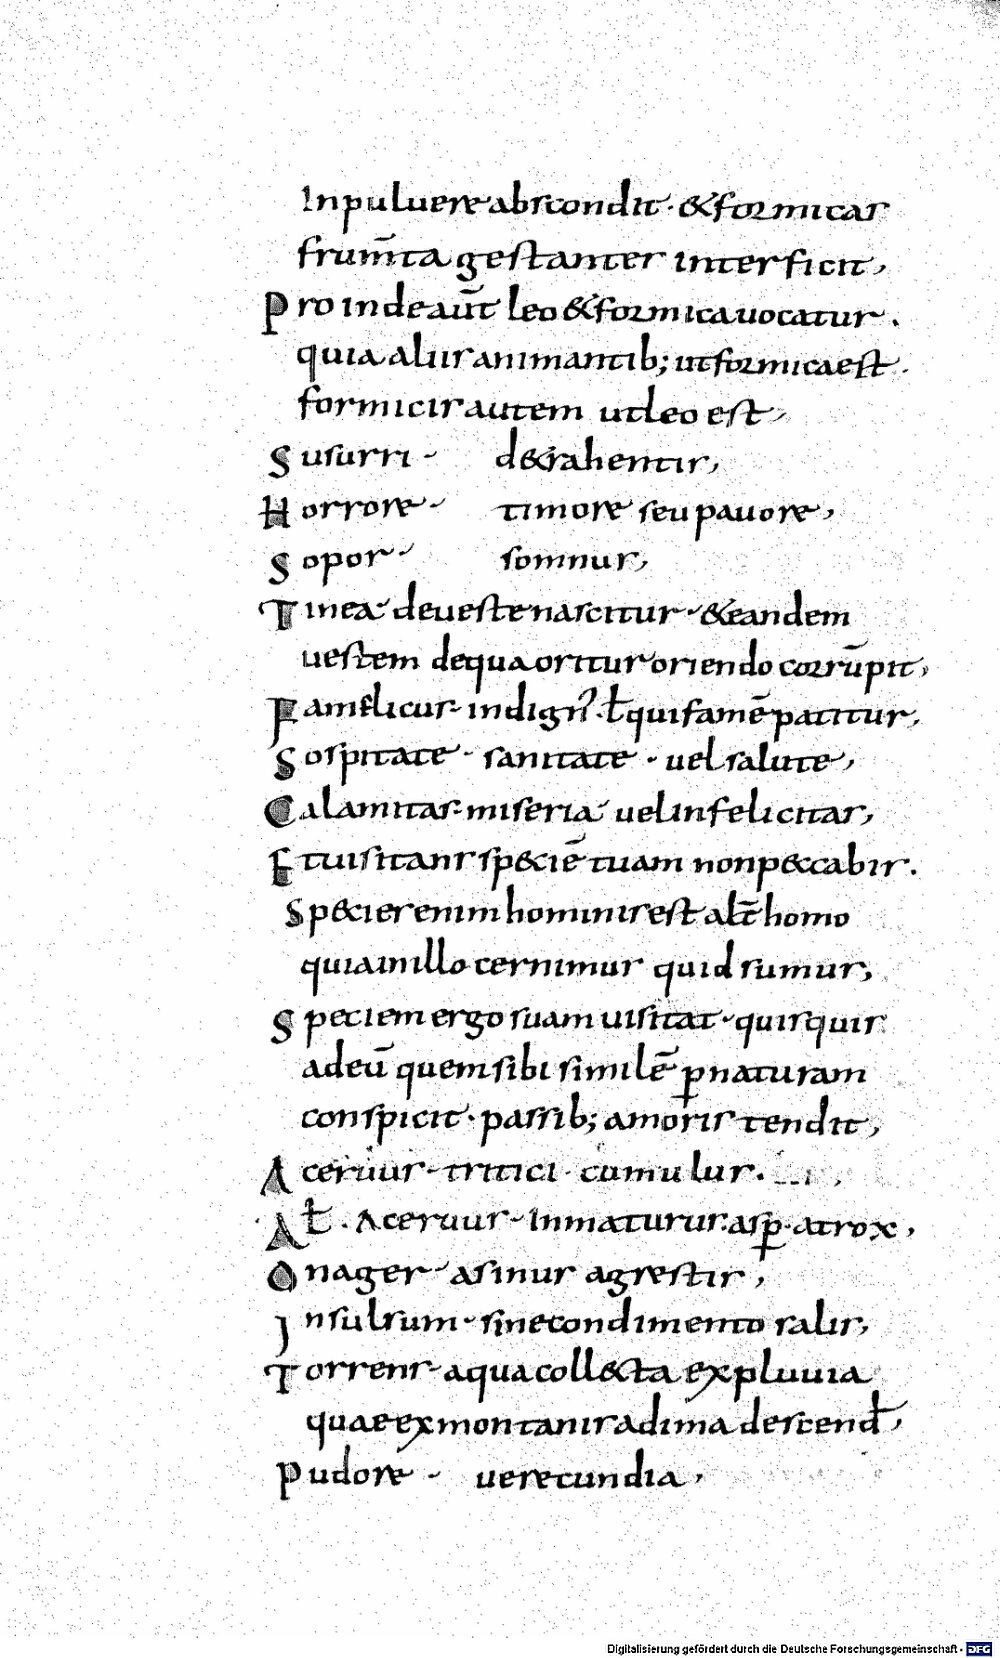 In puluere abscondit · & formicas
frum̄ta gestantes interficit,
Proinde aūt leo & formica uocatur .
quia aliis animantib; ut formica est .
formicis autem ut leo est,
Susurri · detrahentis,
Horrore · timore seu pauore,
Sopor · somnus,
Tinea · de ueste nascitur · & eandem
uestem de qua oritur oriendo corrūpit,
Famelicus · indign᾿ . ł qui famē patitur,
Sospitate · sanitate · uel salute,
Calamitas · miseria uel infelicitas,
Et uisitans sp&ciē tuam non p&ccabis .
Sp&cies enim hominis est alt̄ homo
quia in illo cernimus quid sumus,
Speciem ergo suam uisitat · quisquis
ad eū quem sibi similē ꝑ naturam
conspicit · passib; amoris tendit,
Aceruus · tritici · cumulus .
Ał . Aceruus · Inmaturus . asꝑ · atrox,
Onager · asinus agrestis,
Insulsum · sine condimento salis,
Torrens · aqua coll&cta ex pluuia
quae ex montanis ad ima descend̄,
Pudore · uerecundia,
Digitalisierung gefördert durch die Deutsche Forschungsgemeinschaft - DFG